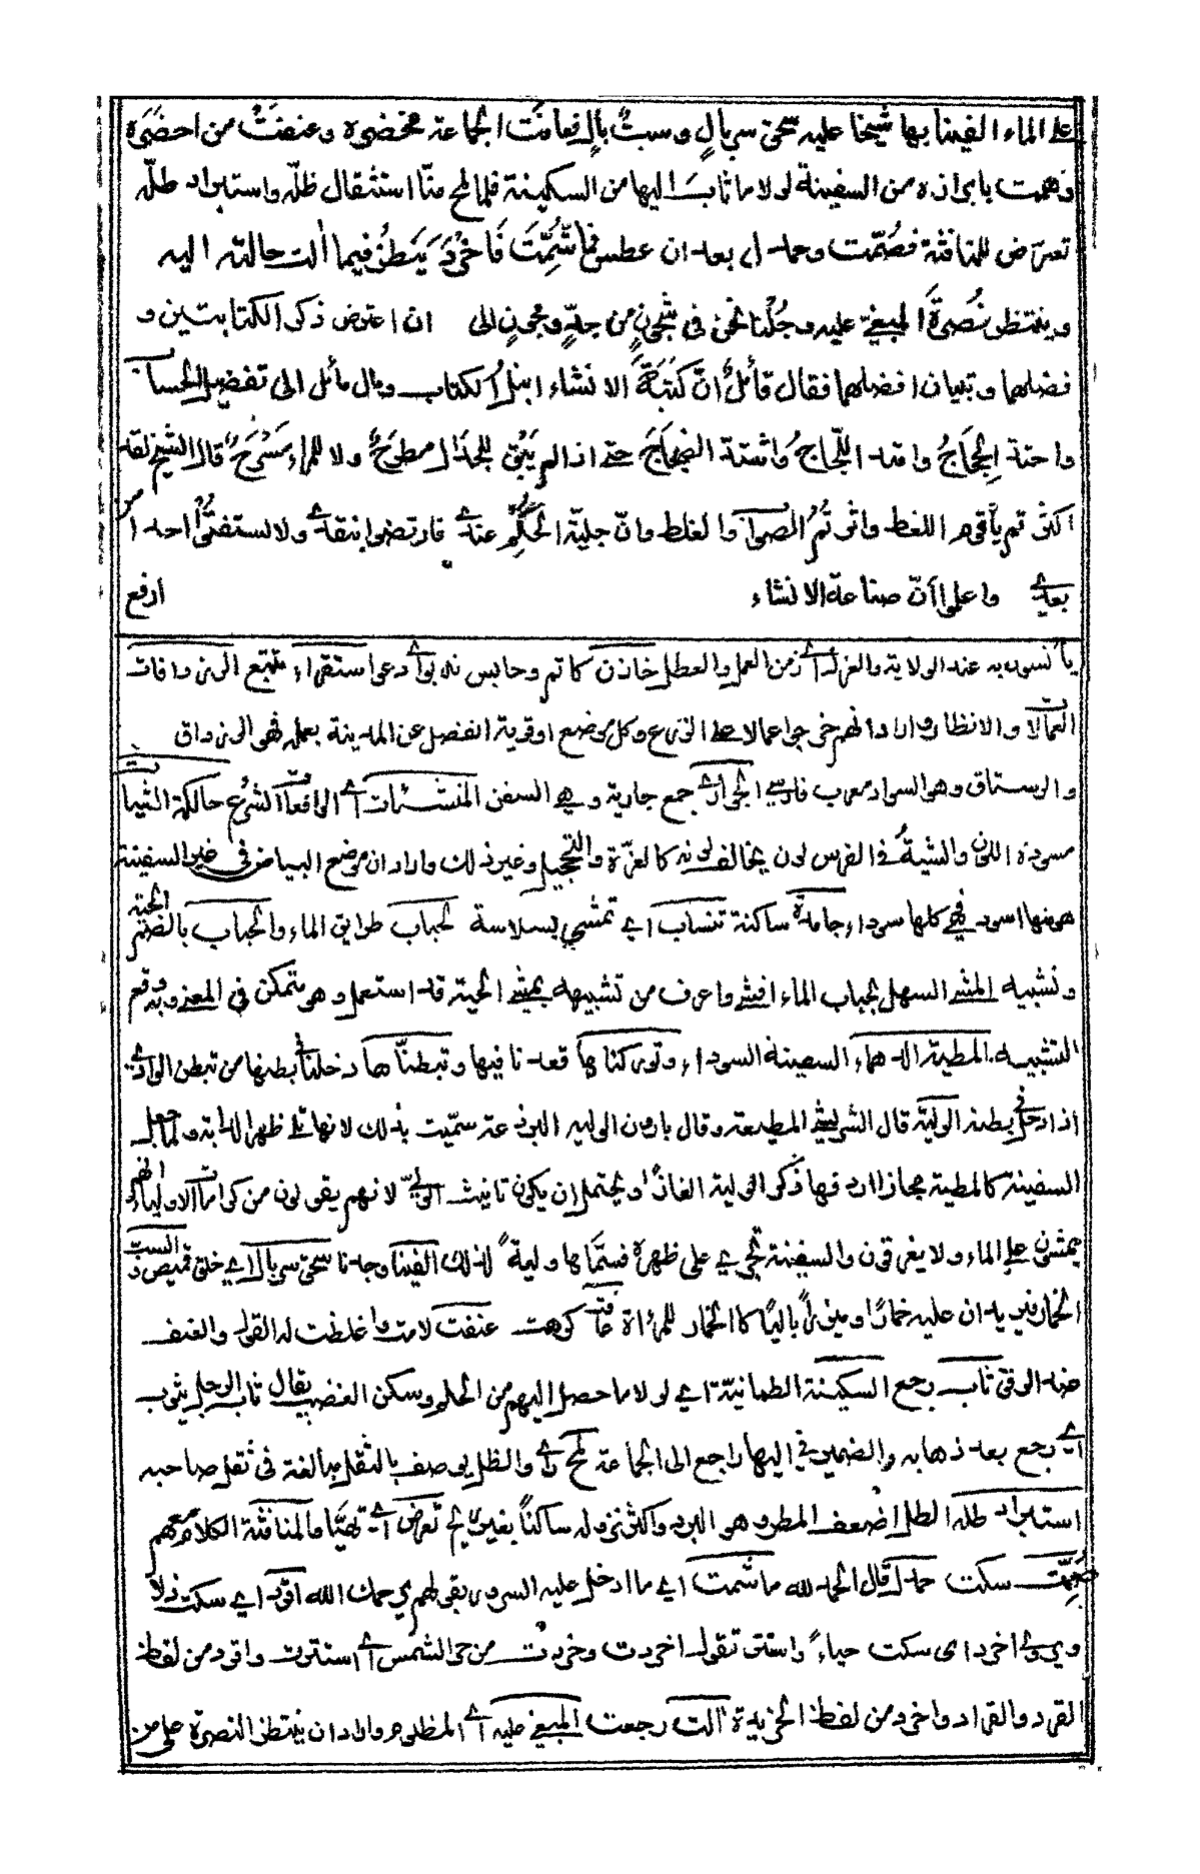 على الماء الفينا بها شيخا عليه سحق سربال وسبٌّ بالٍ فعافت الجماعة محضره وعنفتْ من احضَرَه
وهمت بابرازه من السفينة لولا ما ثابَ اليها من السكينة فلما لمح منّا استثقال ظلّه واستبراد طلّه
تعرّض للمنافثة فصُمّت وحمدل بعد ان عطس فما شُمِّتَ فَاَخْرَدَ يَنظُرُ فيما اٰلت حالته اليه
وينتظر نُصْرَةَ المبغيّ عليه وجُلْنا نحن فى شجونٍ من جدٍّ ومجونٍ الى ان اعترض ذكر الكتابتين و
فضلهما وتبيان افضلهما فقال قائلٌ انّ كَتَبَةَ الانشاء انبل الكتاب ومال مائل الى تفضيل الحساب
واحتدّ الحِجَاجُ وامتد اللّجاجُ واشتدّ الضجاجُ حتى اذا لم يَبْقَ للجدال مطرحٌ ولا للمراء مَسْرَحٌ قال الشيخ لقد
اكثرتم يا قوم اللغط واثرتُمُ الصواب والغلط وانّ جليّة الحُكْمِ عندى فارتضوا بنقدى ولا تستفتُوا احدا من
بعدى واعلموا أنّ صناعة الانشاء ارفع
العمالا والانظار واراد انهم خرجوا عمالا على الزرع وكل موضع او قرية انفصل عن المدينة بعمله فهو الرزداق
والرستاق وهو السواد معرب فارسي الجوارى جمع جارية وهي السفن المنشئات اى الرافعات الشرع حالكة الشيات
مسودة اللون والشية فى الفرس لون يخالف لونه كالغرّة والتحجيل وغير ذلك واراد ان موضع البياض فى غير السفينة
هو منها اسود فهى كلها سوداء جامدة ساكنة تنساب اي تمشي بسلاسة لحباب طرايق الماء والحباب بالضم الحية
وتشبيه المشي السهل بحباب الماء افشى واعرف من تشبيهه بمشى الحية قد استعمل وهو متمكن فى المعنى وبه وقع
التشبيه المطية الدهماء السفينة السوداء وتوركناها قعدنا فيها وتبطنّاها دخلنا فى بطنها من تبطن الوادى
اذا دخل فى بطنه الولية قال الشريشي المطيعة وقال بارون الولية البرذعة سمّيت بذلك لانها تلى ظهر الدابة ولما جعل
السفينة كالمطية مجازا اردفها ذكر الولية الغازًا ويحتمل ان يكون تانيث الوليّ لانهم يقولون من كرامات الاولياء انهم
يمشون على الماء ولا يغرقون والسفينة تجري على ظهره فسمّاها ولية لذلك الفينا وجدنا سحق سربال اي خلق قميص والسب
الخمار فيريد ان عليه خمارًا ومئزرًا باليًا كالخمار للمراة عافت كرهت عنفت لامت واغلظت له القول والعنف
ضد الرفق ثاب رجع السكينة الطمانيّة اي لولا ما حصل اليهم من الحلم وسكن الغضب يقال ثاب الرجل يثوب
اى رجع بعد ذهابه والضمير فى اليها راجع الى الجماعة لمح راى والظل يوصف بالثقل مبالغة فى ثقل صاحبه
استبراد طله الطل اضعف المطر وهو البرد واكثر نزوله ساكنًا بغير ريح تعرض اى تهيّا والمنافثة الكلام معهم
صُمِّت سكت حمدل قال الحمد لله ما شمت اي ما ادخل عليه السرور بقولهم يرحمك الله اقرد اي سكت ذلا
ويروى اخرد اى سكت حياءً واستتر تقول اخردت وخردت من حر الشمس اى استترت واقرد من لفظ
القرد والقراد واخرد من لفظ الخريدة اٰلت رجعت المبغي عليه اى المظلوم واراد ان ينتظر النصرة على من